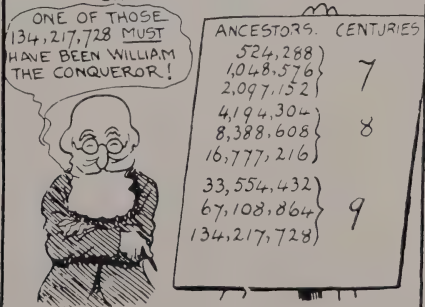 ONE OF THOSE
134,217,728 MUST
HAVE BEEN WILLIAM
THE CONQUEROR!
ANCESTORS. CENTURIES
524,288
1,048,576 7
2,097,152
4,194,304
8,388,608 8
16,777,216
33,554,432
67,108,864 9
134,217,728